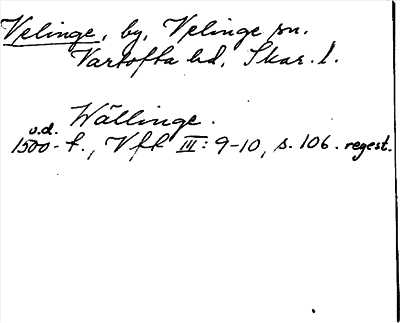 Velinge, by, Velinge sn.
Vartofta hd, Skar. l.
Wällinge.
u.d.
1500-t., Vft III: 9-10, s. 106. regest.